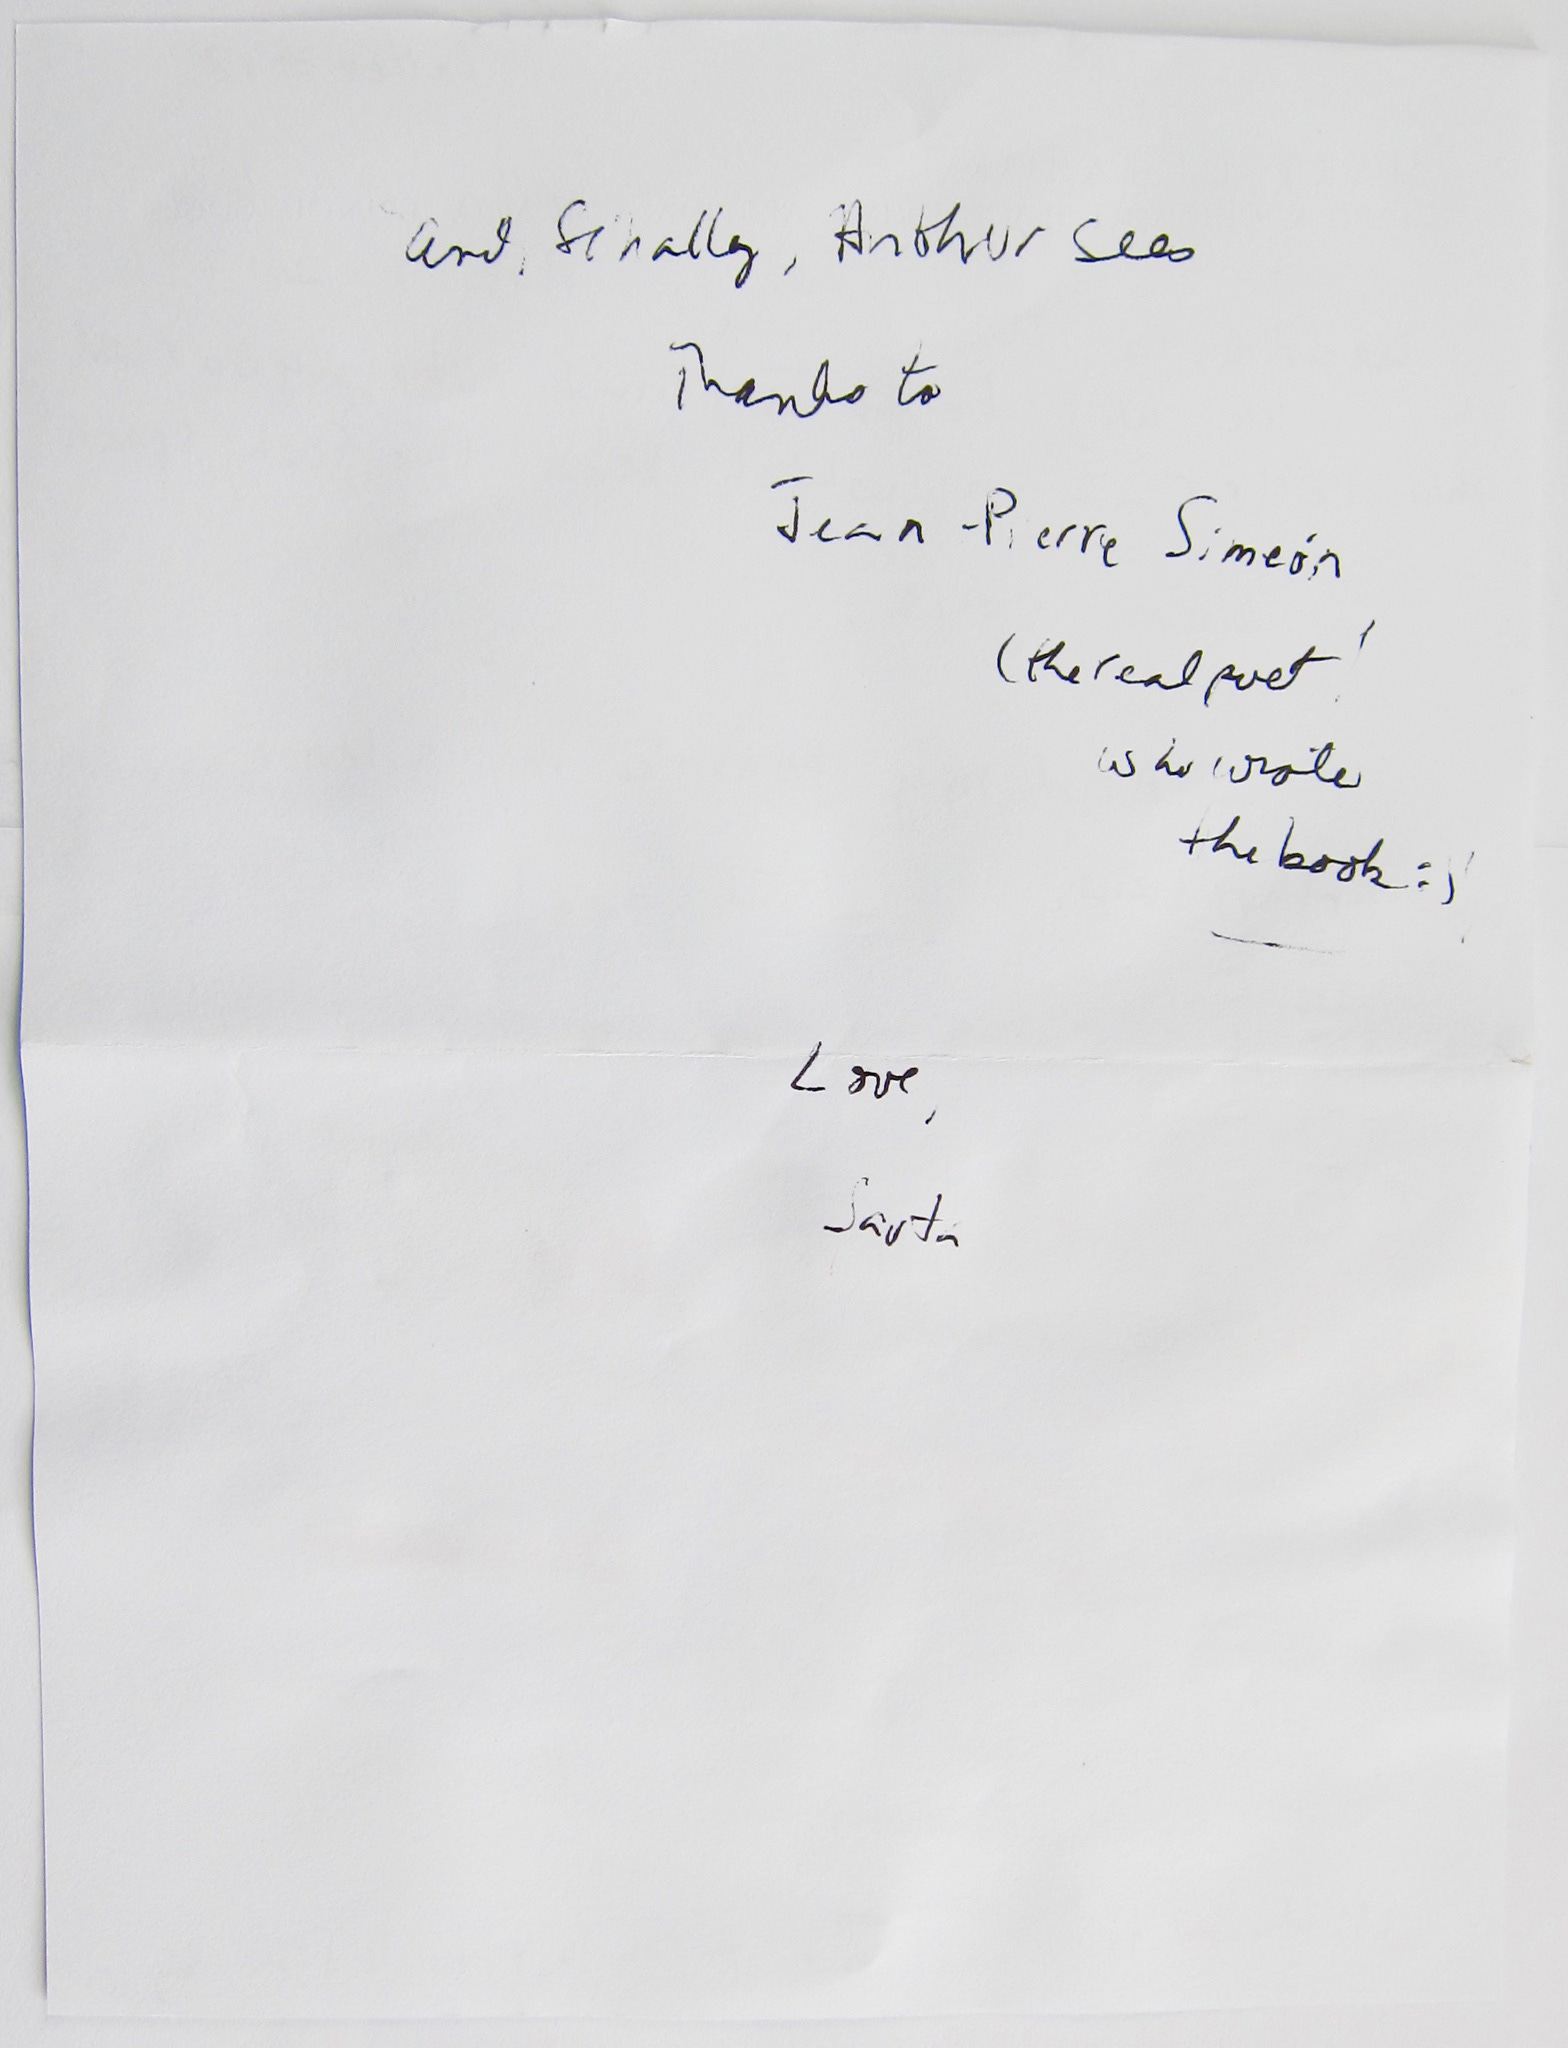 and, finally, Arthur sees
Thanks to
Jean-Pierre Simeón
(the real poet!
who wrote
the book :)!
Love,
Savta